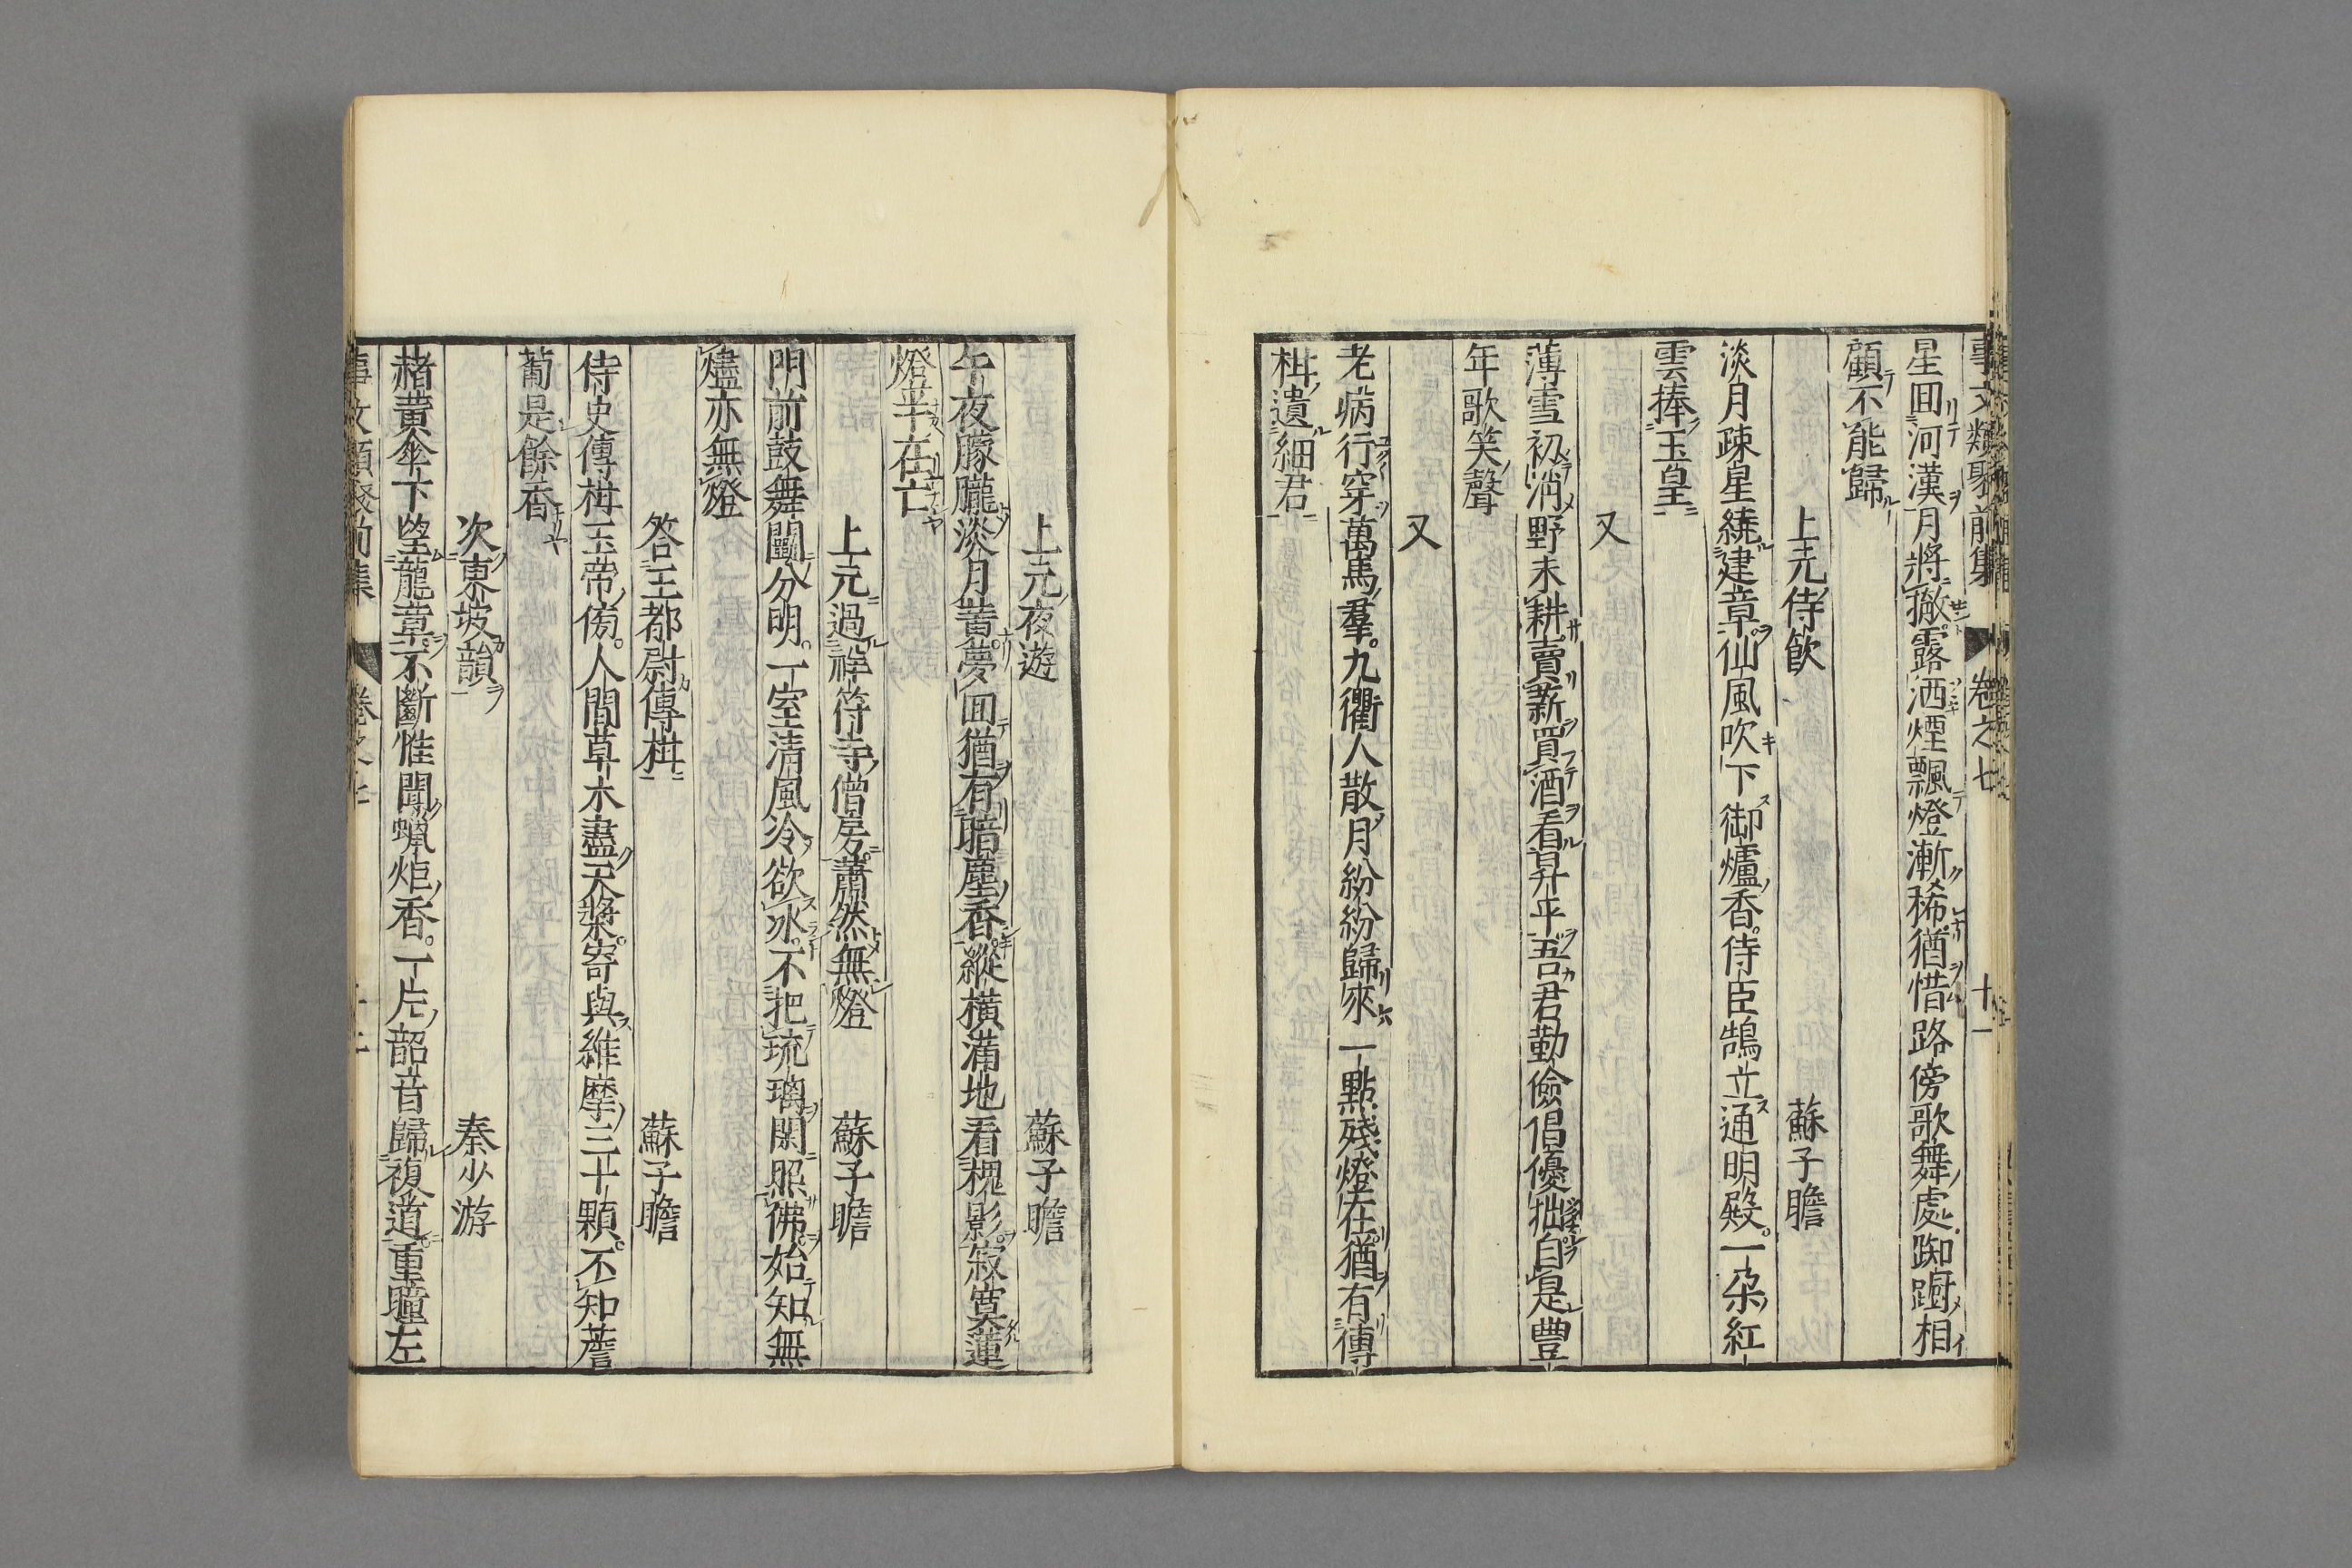 事文類聚前集 卷之七 十一
星囬河漢月將撤露洒煙飄燈漸稀猶惜路傍歌舞處踟躕相
顧不能歸
上元侍飲 蘇子瞻
淡月疎星繞建章仙風吹下御爐香侍臣鵠立通明殿一朶紅
雲捧玉皇
又
薄雪初消野未耕賣薪買酒看昇平吾君勤儉倡優拙自是豊
年歌笑聲
又
老病行穿萬馬羣九衢人散月紛紛歸來一點殘燈在猶有傳
柑遺細君
上元夜遊 蘇子瞻
午夜朦朧淡月黃夢囬猶有暗塵香縱橫滿地看槐影寂寞蓮
燈半在亡
上元過祥符寺僧房蕭然無燈 蘇子瞻
門前鼓舞鬪分明一室清風冷欲冰不把琉璃閑照佛始知無
燼亦無燈
答王都尉傳柑 蘇子瞻
侍史傳柑玉帝傍人間草木盡天漿寄與維摩三十顆不知薝
蔔是餘香
次東坡韻 秦少游
赭黃傘下望龍章不斷惟聞蠟炬香一片韶音歸複道重瞳左